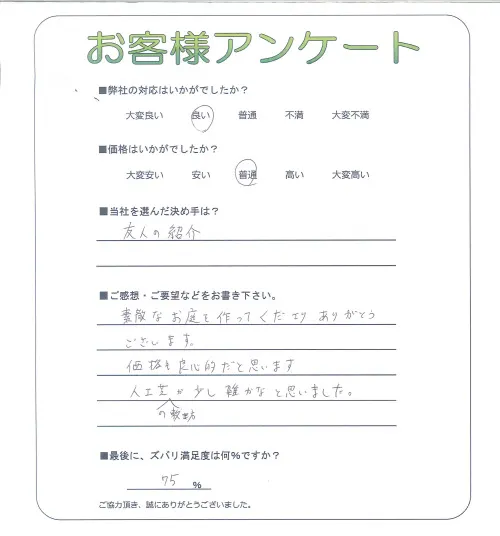 お客様アンケート
■弊社の対応はいかがでしたか？
大変良い 良い 普通 不満 大変不満
■価格はいかがでしたか？
大変安い 安い 普通 高い 大変高い
■当社を選んだ決め手は？
友人の紹介
■ご感想・ご要望などをお書き下さい。
素敵なお庭を作ってくださり ありがとう
ございます。
価格も良心的だと思います
人工芝が少し雑かなと思いました。
の敷き方
■最後に、ズバリ満足度は何%ですか？
75 %
ご協力頂き、誠にありがとうございました。